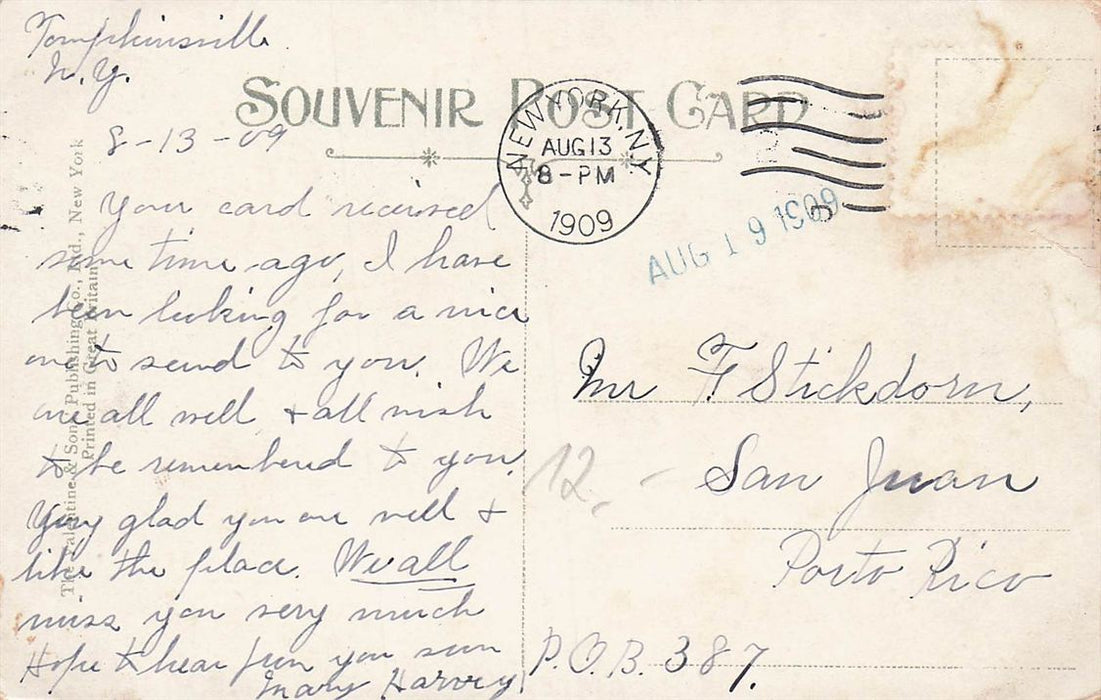 Tompkinsville
N.Y.
SOUVENIR POST CARD
NEW YORK, N.Y.
AUG 13
8-PM
1909
8-13-09
AUG 19 1909
Your card received
some time ago, I have
been looking for a nice
one to send to you. We
are all well + all wish
to be remembered to you.
Very glad you are well +
like the place. We all
miss you very much
Hope to hear from you soon
Mary Harvey
Mr F Stickdorn,
San Juan
Porto Rico
P.O.B. 387.
12.-
The Valentine & Sons Publishing Co., Ltd., New York
Printed in Great Britain